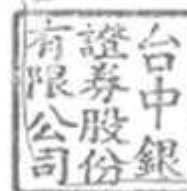 台中銀
證券股份
有限公司